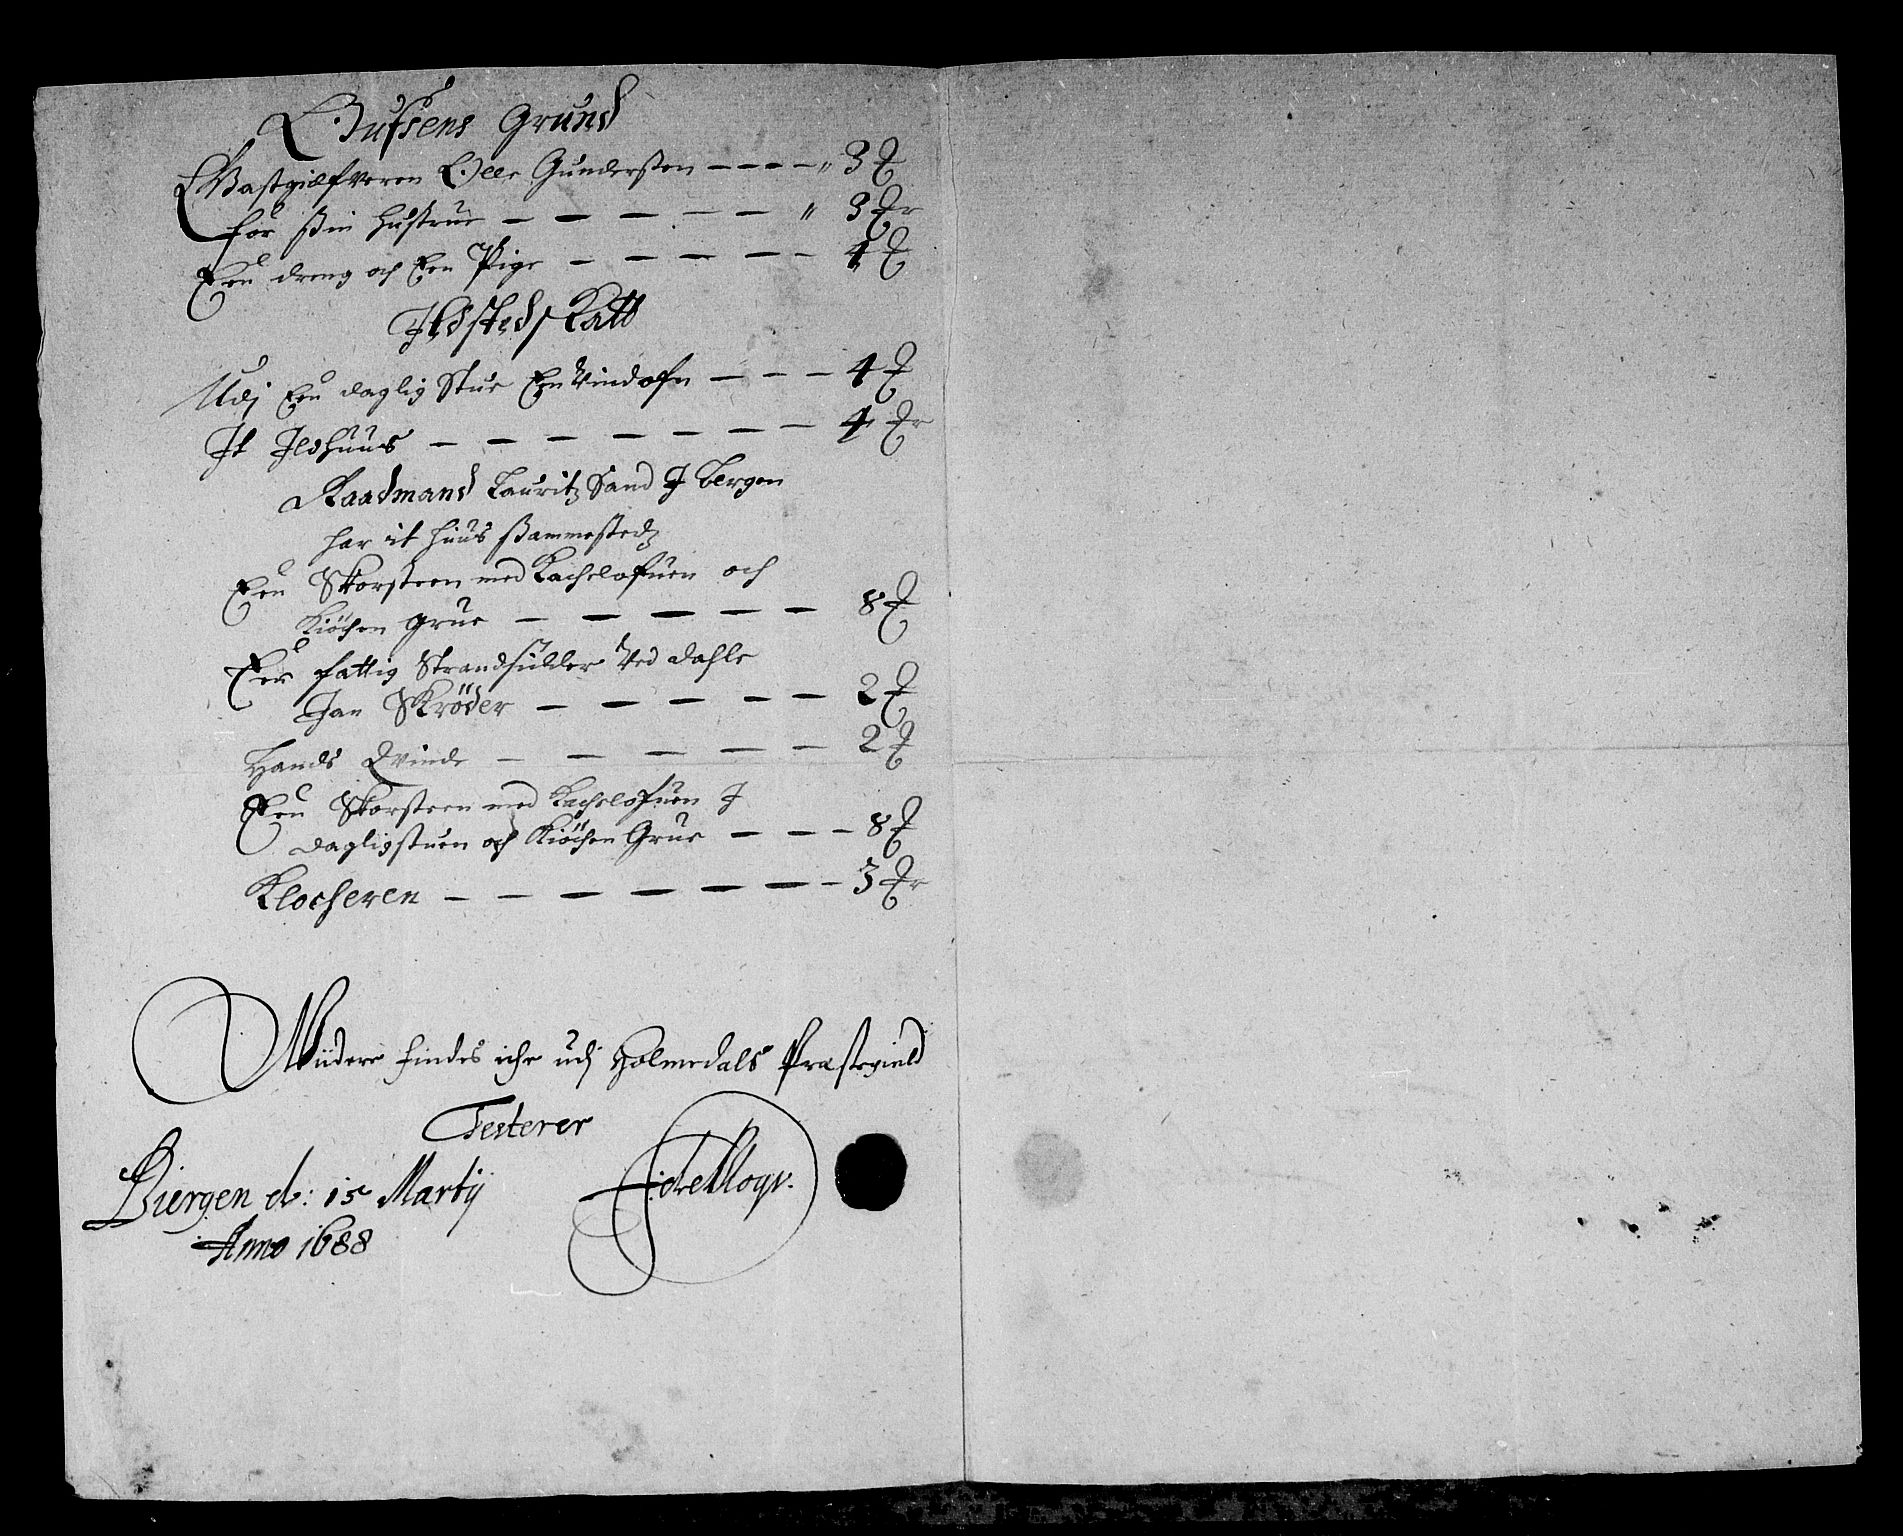 Bussens Grund
Gastgiefveren Olle Gundersten - - - - " 3
for sin hustrue - - - - - " 3
Een dreng och Een Pige - - - - - 4
Ildsted Skatt
Udj Een daglig Stue Een Vindofn - - - 4
It Ildhuus - - - - - - - 4
Raadmand Lauritz Sand J bergen
har it huus sammestedz
Een Skorsteen med Kachelofuen och
Kiöchen grue - - - - - 8
Een fattig Strandsidder Ved dahle
Jan Skröder - - - - - 2
Hands Qvinde - - - - - 2
Een Skorsteen med Kachelofuen J
dagligstuen och Kiöchen Grue - - - 8
Klocheren - - - - - - - 3
Viidere findes iche udj Holmedals Præstegield
Testerer
Biergen d: 15 Martij
Anno 1688